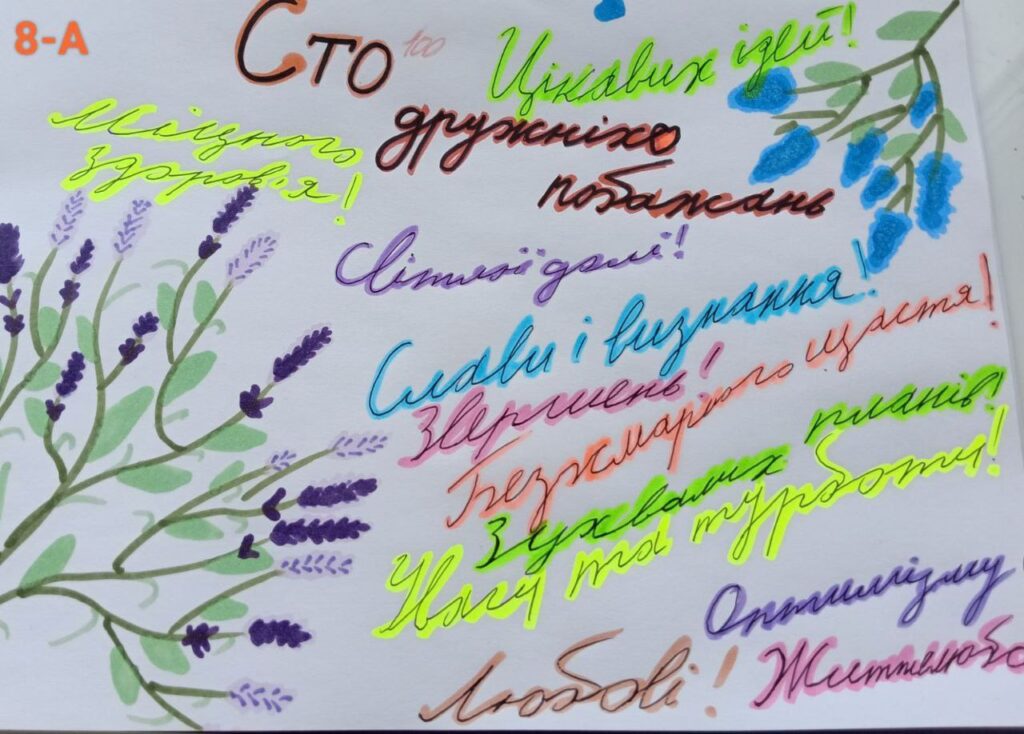 8-А
Сто 100
Цікавих ідей!
дружніх
побажань
Міцного
здоров'я!
Світлої долі!
Слави і визнання!
Звершень!
Безхмарного щастя!
Зухвалих планів!
Уваги та турботи!
Оптимізму
Любові!
Життелюбо